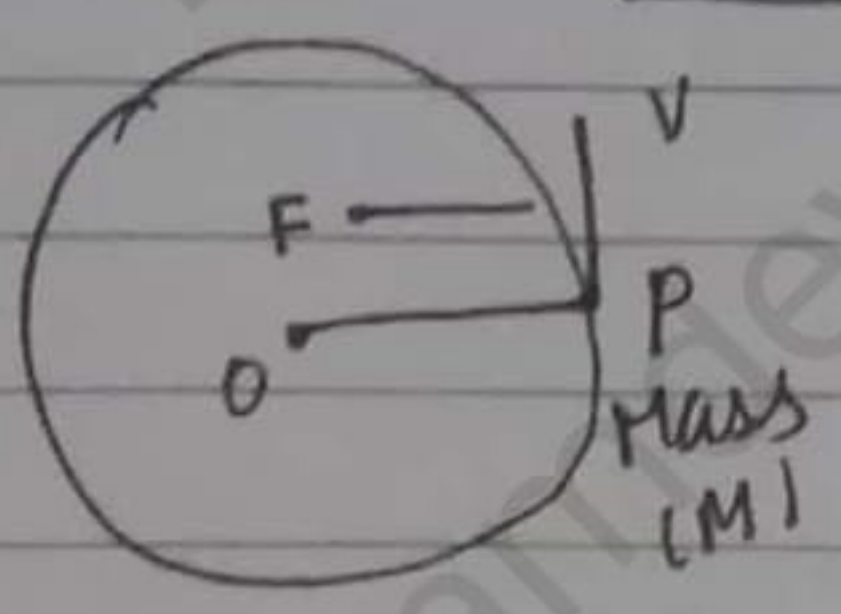 V
F
P
O
Mass
(M)